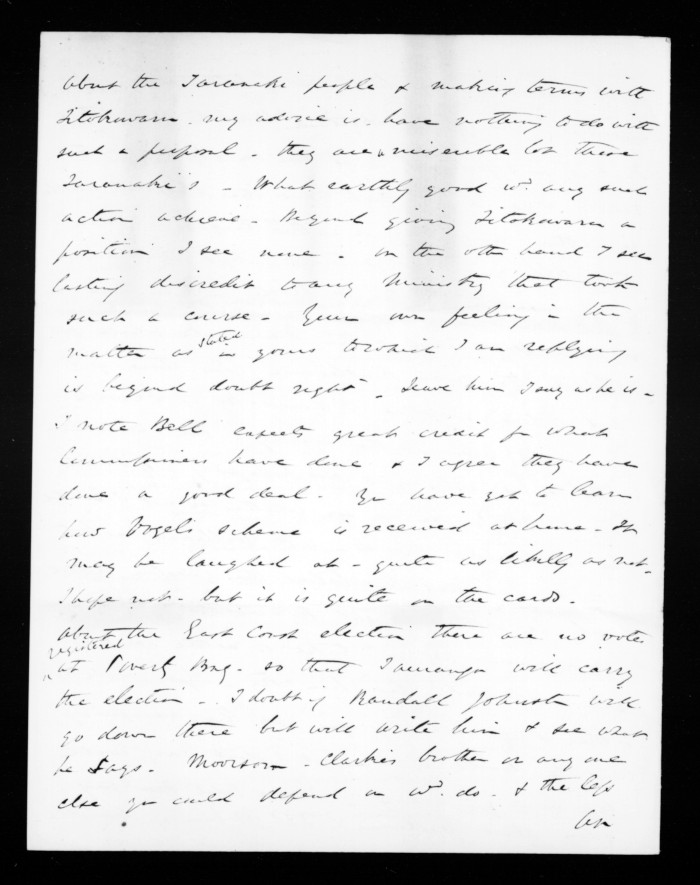 about the Taranaki people & making terms with
Titokowaru. my advice is. have nothing to do with
such a proposal. they are a miserable lot these
Taranaki's - What earthly good wd. any such
action achieve - Beyond giving Titokowaru a
position I see none. on the oth hand I see
lasting discredit to any Ministry that took
such a course - Your own feeling in the
matter as stated in yours to which I am replying
is beyond doubt right. Leave him I say as he is -
I note Bell expects great credit for what
Commissioners have done & I agree they have
done a good deal. You have yet to learn
how Vogels scheme is received at home - It
may be laughed at - quite as likely as not.
I hope not - but it is quite on the cards.
about the East Coast election there are no votes
registered at Poverty Bay - so that Tauranga will carry
the election - I doubt if Randall Johnson will
go down there but will write him & see what
he says - Moorsom - Clarkes brother or any one
else you could depend on wd. do - & the less